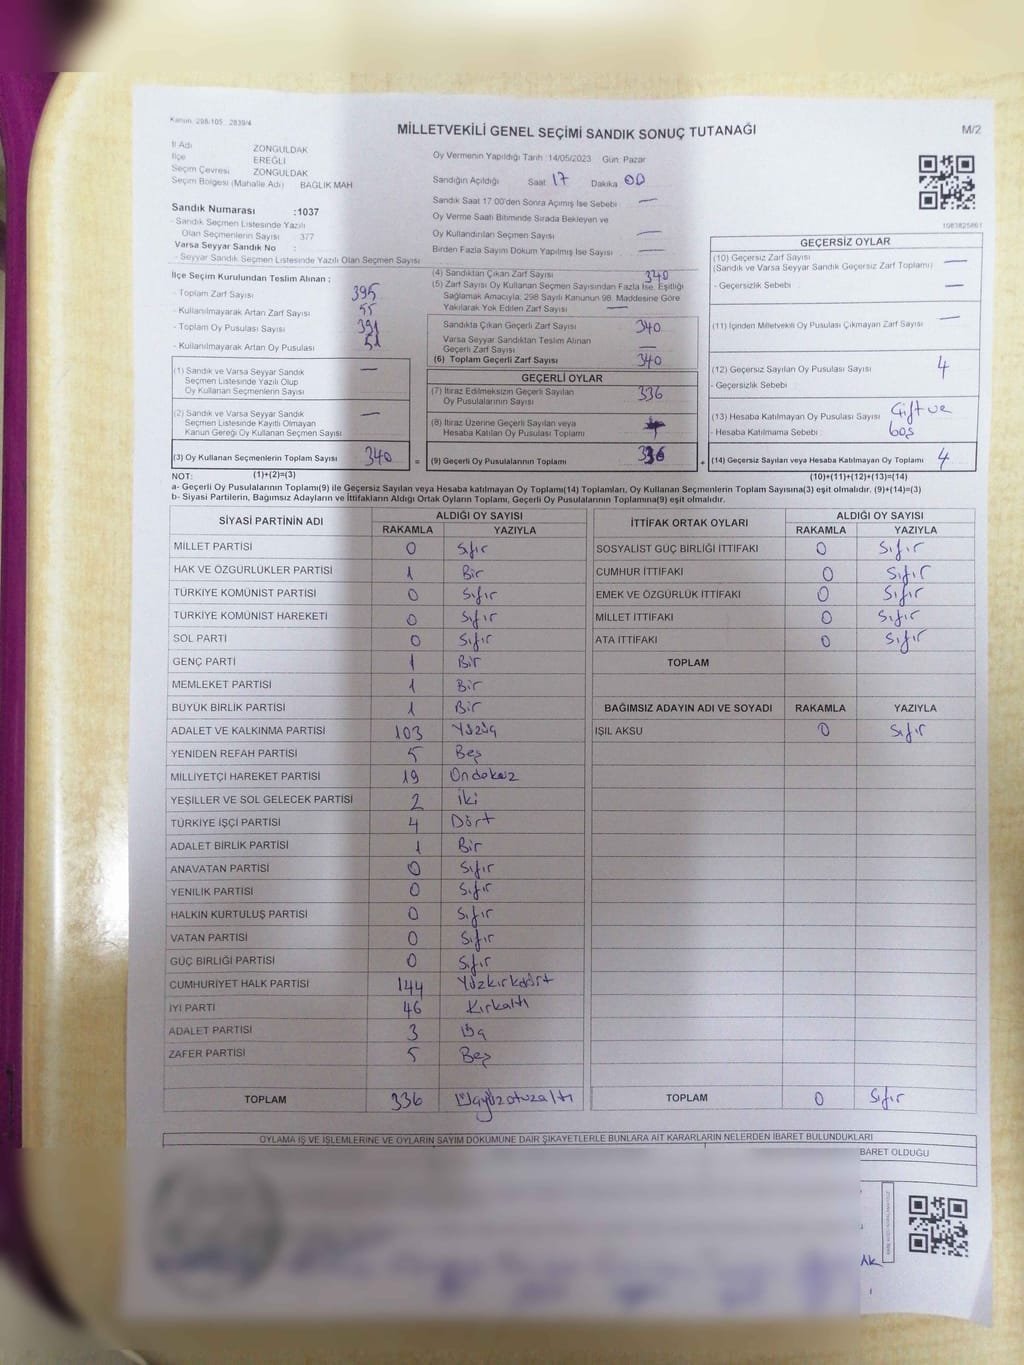 Kanun: 298/105 , 2839/4
MİLLETVEKİLİ GENEL SEÇİMİ SANDIK SONUÇ TUTANAĞI
M/2
İl Adı ZONGULDAK
İlçe EREĞLİ
Seçim Çevresi ZONGULDAK
Seçim Bölgesi (Mahalle Adı) BAGLIK MAH
Sandık Numarası :1037
- Sandık Seçmen Listesinde Yazılı
Olan Seçmenlerin Sayısı 377
Varsa Seyyar Sandık No :
- Seyyar Sandık Seçmen Listesinde Yazılı Olan Seçmen Sayısı
Oy Vermenin Yapıldığı Tarih :14/05/2023 Gün: Pazar
Sandığın Açıldığı Saat 17 Dakika 00
Sandık Saat 17:00'den Sonra Açımış İse Sebebi —
Oy Verme Saati Bitiminde Sırada Bekleyen ve
Oy Kullandırılan Seçmen Sayısı —
Birden Fazla Sayım Döküm Yapılmış İse Sayısı —
1083825861
İlçe Seçim Kurulundan Teslim Alınan ;
- Toplam Zarf Sayısı 395
- Kullanılmayarak Artan Zarf Sayısı 55
- Toplam Oy Pusulası Sayısı 391
- Kullanılmayarak Artan Oy Pusulası 51
(1) Sandık ve Varsa Seyyar Sandık —
Seçmen Listesinde Yazılı Olup
Oy Kullanan Seçmenlerin Sayısı
(2) Sandık ve Varsa Seyyar Sandık —
Seçmen Listesinde Kayıtlı Olmayan
Kanun Gereği Oy Kullanan Seçmen Sayısı
(3) Oy Kullanan Seçmenlerin Toplam Sayısı 340 =
(4) Sandıktan Çıkan Zarf Sayısı 340
(5) Zarf Sayısı Oy Kullanan Seçmen Sayısından Fazla İse, Eşitliği
Sağlamak Amacıyla; 298 Sayılı Kanunun 98. Maddesine Göre
Yakılarak Yok Edilen Zarf Sayısı —
Sandıkta Çıkan Geçerli Zarf Sayısı 340
Varsa Seyyar Sandıktan Teslim Alınan
Geçerli Zarf Sayısı —
(6) Toplam Geçerli Zarf Sayısı 340
GEÇERLİ OYLAR
(7) İtiraz Edilmeksizin Geçerli Sayılan 336
Oy Pusulalarının Sayısı
(8) İtiraz Üzerine Geçerli Sayılan veya
Hesaba Katılan Oy Pusulası Toplamı
(9) Geçerli Oy Pusulalarının Toplamı 336 +
GEÇERSİZ OYLAR
(10) Geçersiz Zarf Sayısı —
(Sandık ve Varsa Seyyar Sandık Geçersiz Zarf Toplamı)
- Geçersizlik Sebebi : —
(11) İçinden Milletvekili Oy Pusulası Çıkmayan Zarf Sayısı —
(12) Geçersiz Sayılan Oy Pusulası Sayısı 4
- Geçersizlik Sebebi :
(13) Hesaba Katılmayan Oy Pusulası Sayısı Çift ve
- Hesaba Katılmama Sebebi : boş
(14) Geçersiz Sayılan veya Hesaba Katılmayan Oy Toplamı 4
NOT: (1)+(2)=(3) (10)+(11)+(12)+(13)=(14)
a- Geçerli Oy Pusulalarının Toplamı(9) ile Geçersiz Sayılan veya Hesaba katılmayan Oy Toplamı(14) Toplamları, Oy Kullanan Seçmenlerin Toplam Sayısına(3) eşit olmalıdır. (9)+(14)=(3)
b- Siyasi Partilerin, Bağımsız Adayların ve İttifakların Aldığı Ortak Oyların Toplamı, Geçerli Oy Pusulalarının Toplamına(9) eşit olmalıdır.
SİYASİ PARTİNİN ADI ALDIĞI OY SAYISI
RAKAMLA YAZIYLA
MİLLET PARTİSİ 0 Sıfır
HAK VE ÖZGÜRLÜKLER PARTİSİ 1 Bir
TÜRKİYE KOMÜNİST PARTİSİ 0 Sıfır
TÜRKİYE KOMÜNİST HAREKETİ 0 Sıfır
SOL PARTİ 0 Sıfır
GENÇ PARTİ 1 Bir
MEMLEKET PARTİSİ 1 Bir
BÜYÜK BİRLİK PARTİSİ 1 Bir
ADALET VE KALKINMA PARTİSİ 103 Yüzüç
YENİDEN REFAH PARTİSİ 5 Beş
MİLLİYETÇİ HAREKET PARTİSİ 19 Ondokuz
YEŞİLLER VE SOL GELECEK PARTİSİ 2 İki
TÜRKİYE İŞÇİ PARTİSİ 4 Dört
ADALET BİRLİK PARTİSİ 1 Bir
ANAVATAN PARTİSİ 0 Sıfır
YENİLİK PARTİSİ 0 Sıfır
HALKIN KURTULUŞ PARTİSİ 0 Sıfır
VATAN PARTİSİ 0 Sıfır
GÜÇ BİRLİĞİ PARTİSİ 0 Sıfır
CUMHURİYET HALK PARTİSİ 144 Yüzkırkdört
İYİ PARTİ 46 Kırkaltı
ADALET PARTİSİ 3 Üç
ZAFER PARTİSİ 5 Beş
TOPLAM 336 Üçyüzotuzaltı
İTTİFAK ORTAK OYLARI ALDIĞI OY SAYISI
RAKAMLA YAZIYLA
SOSYALİST GÜÇ BİRLİĞİ İTTİFAKI 0 Sıfır
CUMHUR İTTİFAKI 0 Sıfır
EMEK VE ÖZGÜRLÜK İTTİFAKI 0 Sıfır
MİLLET İTTİFAKI 0 Sıfır
ATA İTTİFAKI 0 Sıfır
TOPLAM
BAĞIMSIZ ADAYIN ADI VE SOYADI RAKAMLA YAZIYLA
IŞIL AKSU 0 Sıfır
TOPLAM 0 Sıfır
OYLAMA İŞ VE İŞLEMLERİNE VE OYLARIN SAYIM DÖKÜMÜNE DAİR ŞİKAYETLERLE BUNLARA AİT KARARLARIN NELERDEN İBARET BULUNDUKLARI
BARET OLDUĞU